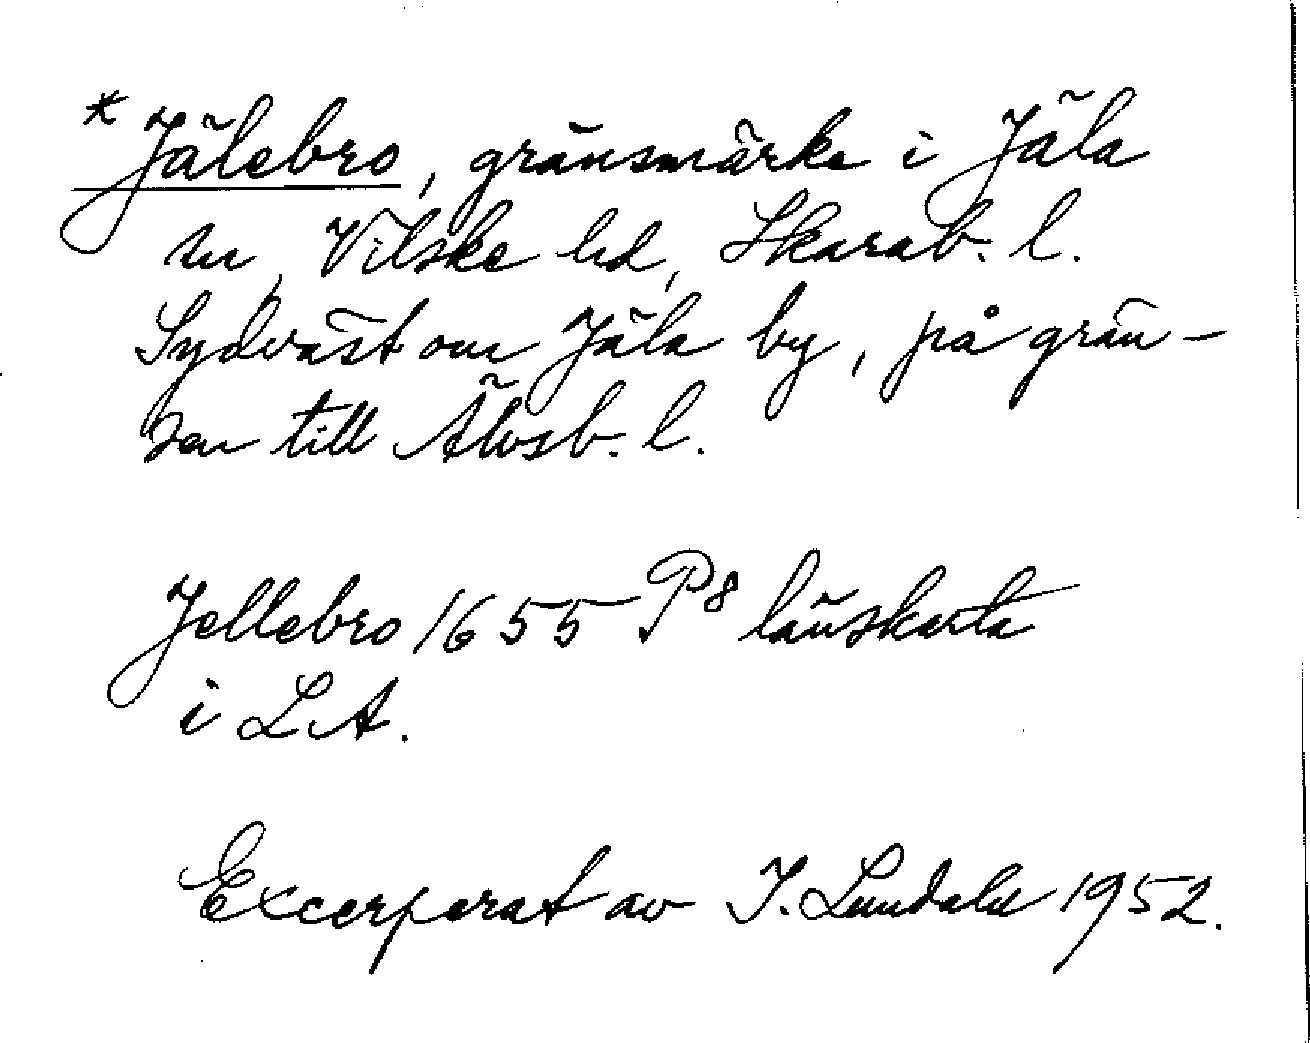 * Jälebro, gränsmärke i Jäla
sn, Vilske hd, Skarab. l.
Sydväst om Jäla by, på grän-
sen till Älvsb. l.
Jellebro 1655 P8 länskarta
i LA.
Excerperat av I. Lundahl 1952.